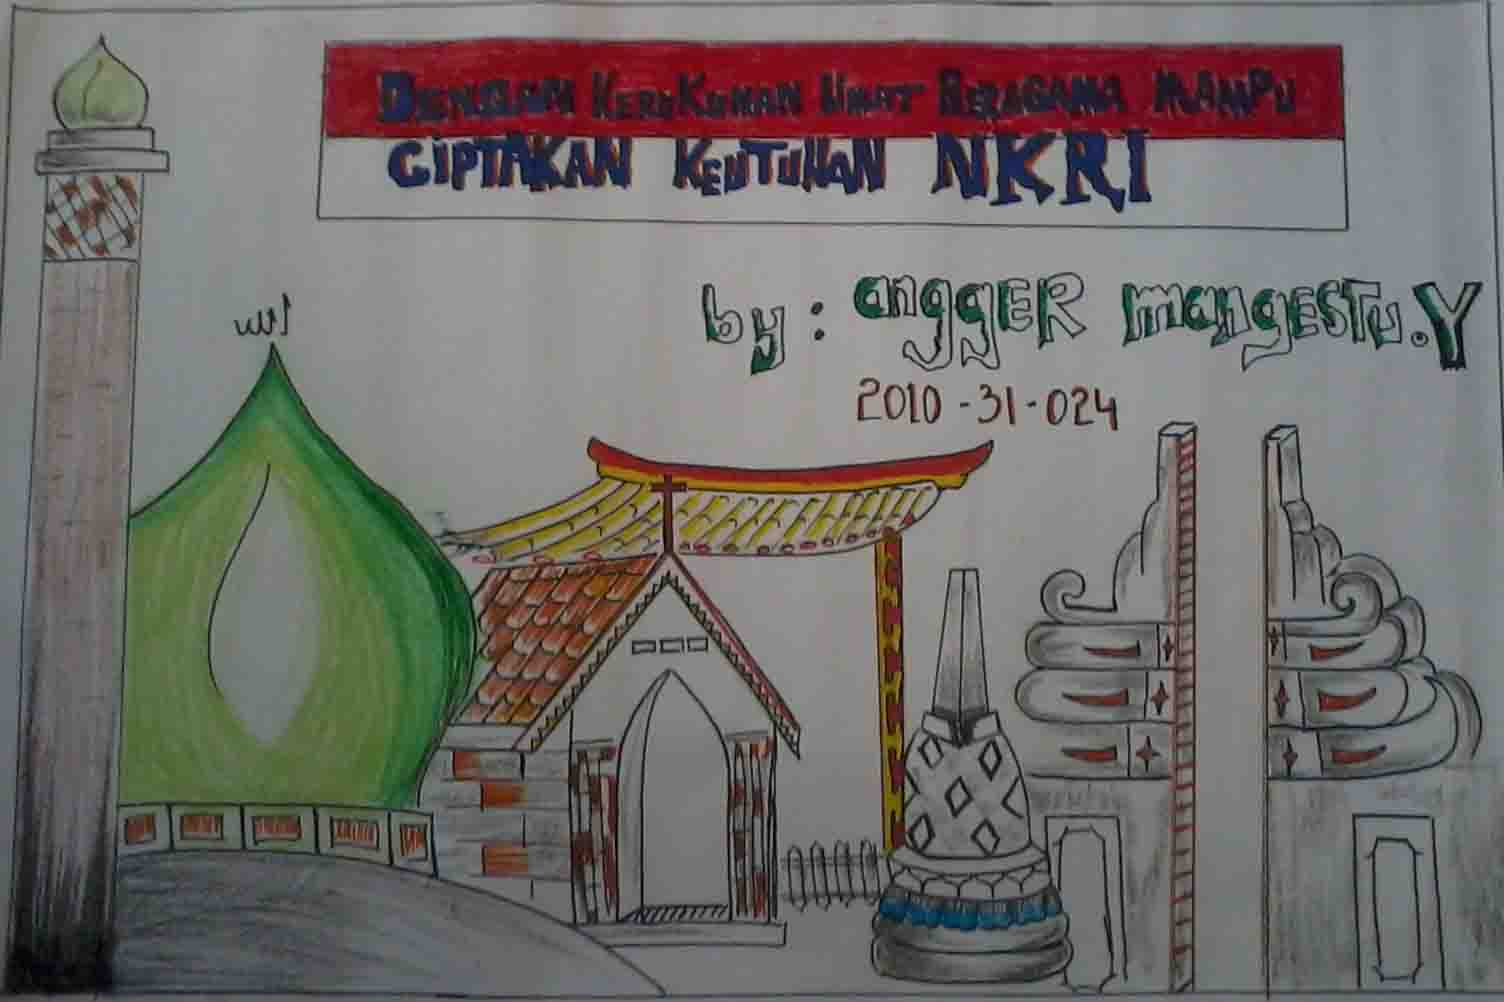 DENGAN KERUKUNAN UMAT BERAGAMA MAMPU
CIPTAKAN KEUTUHAN NKRI
by : anggER mangESTu.Y
2010-31-024
الله